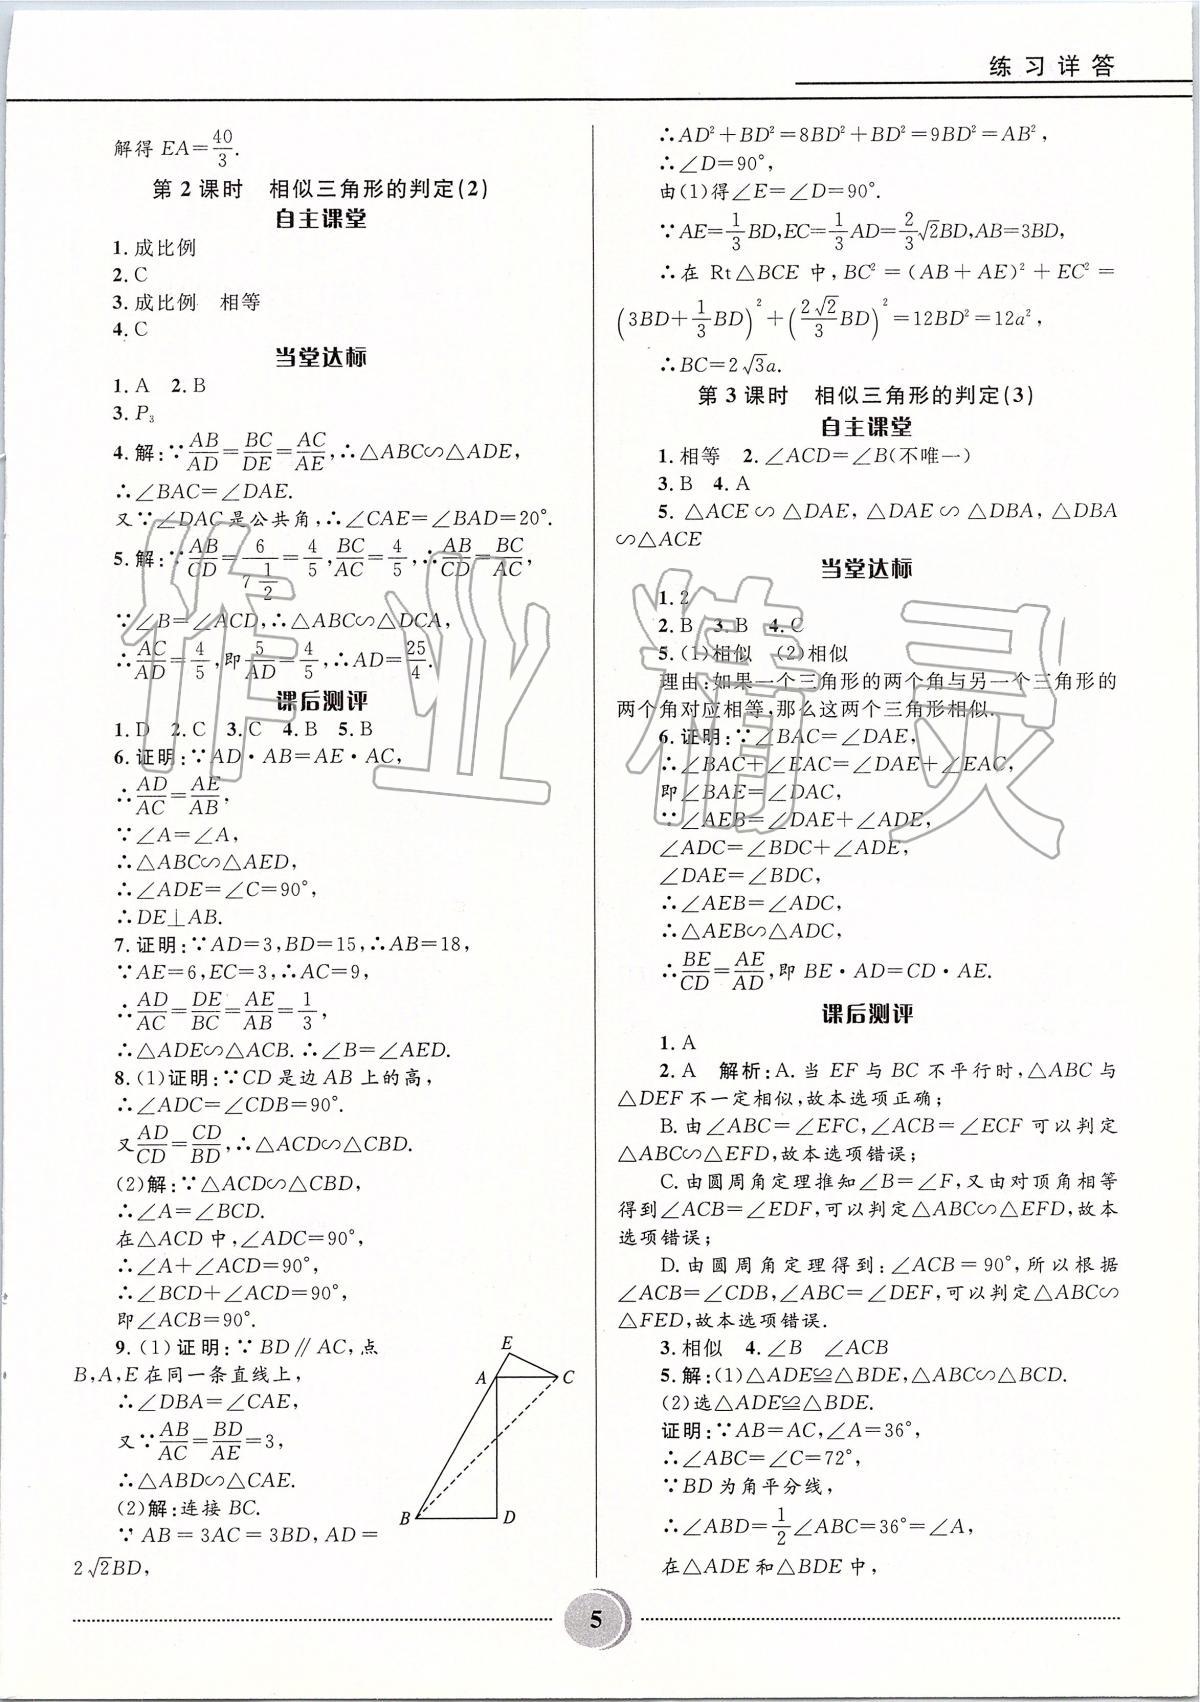 练习详答
解得 EA=40/3.
第2课时 相似三角形的判定(2)
自主课堂
1.成比例
2.C
3.成比例 相等
4.C
当堂达标
1.A 2.B
3.P₃
4.解:∵AB/AD=BC/DE=AC/AE,∴△ABC∽△ADE,
∴∠BAC=∠DAE.
又∵∠DAC是公共角,∴∠CAE=∠BAD=20°.
5.解:∵AB/CD=6/(7 1/2)=4/5,BC/AC=4/5,∴AB/CD=BC/AC,
∵∠B=∠ACD,∴△ABC∽△DCA,
∴AC/AD=4/5,即5/AD=4/5,∴AD=25/4.
课后测评
1.D 2.C 3.C 4.B 5.B
6.证明:∵AD·AB=AE·AC,
∴AD/AC=AE/AB,
∵∠A=∠A,
∴△ABC∽△AED,
∴∠ADE=∠C=90°,
∴DE⊥AB.
7.证明:∵AD=3,BD=15,∴AB=18,
∵AE=6,EC=3,∴AC=9,
∴AD/AC=DE/BC=AE/AB=1/3,
∴△ADE∽△ACB.∴∠B=∠AED.
8.(1)证明:∵CD是边AB上的高,
∴∠ADC=∠CDB=90°.
又AD/CD=CD/BD,∴△ACD∽△CBD.
(2)解:∵△ACD∽△CBD,
∴∠A=∠BCD.
在△ACD中,∠ADC=90°,
∴∠A+∠ACD=90°,
∴∠BCD+∠ACD=90°,
即∠ACB=90°.
9.(1)证明:∵BD∥AC,点
B,A,E在同一条直线上,
∴∠DBA=∠CAE,
又∵AB/AC=BD/AE=3,
∴△ABD∽△CAE.
(2)解:连接BC.
∵AB=3AC=3BD,AD=
2√2BD,
E
A
C
B
D
∴AD²+BD²=8BD²+BD²=9BD²=AB²,
∴∠D=90°,
由(1)得∠E=∠D=90°.
∵AE=1/3BD,EC=1/3AD=2/3√2BD,AB=3BD,
∴在Rt△BCE中,BC²=(AB+AE)²+EC²=
(3BD+1/3BD)²+(2√2/3BD)²=12BD²=12a²,
∴BC=2√3a.
第3课时 相似三角形的判定(3)
自主课堂
1.相等 2.∠ACD=∠B(不唯一)
3.B 4.A
5.△ACE∽△DAE,△DAE∽△DBA,△DBA
∽△ACE
当堂达标
1.2
2.B 3.B 4.C
5.(1)相似 (2)相似
理由:如果一个三角形的两个角与另一个三角形的
两个角对应相等,那么这两个三角形相似.
6.证明:∵∠BAC=∠DAE,
∴∠BAC+∠EAC=∠DAE+∠EAC,
即∠BAE=∠DAC,
∵∠AEB=∠DAE+∠ADE,
∠ADC=∠BDC+∠ADE,
∠DAE=∠BDC,
∴∠AEB=∠ADC,
∴△AEB∽△ADC,
∴BE/CD=AE/AD,即BE·AD=CD·AE.
课后测评
1.A
2.A 解析:A.当EF与BC不平行时,△ABC与
△DEF不一定相似,故本选项正确;
B.由∠ABC=∠EFC,∠ACB=∠ECF可以判定
△ABC∽△EFD,故本选项错误;
C.由圆周角定理推知∠B=∠F,又由对顶角相等
得到∠ACB=∠EDF,可以判定△ABC∽△EFD,故本
选项错误;
D.由圆周角定理得到:∠ACB=90°,所以根据
∠ACB=∠CDB,∠ABC=∠DEF,可以判定△ABC∽
△FED,故本选项错误.
3.相似 4.∠B ∠ACB
5.解:(1)△ADE≌△BDE,△ABC∽△BCD.
(2)选△ADE≌△BDE.
证明:∵AB=AC,∠A=36°,
∴∠ABC=∠C=72°,
∵BD为角平分线,
∴∠ABD=1/2∠ABC=36°=∠A,
在△ADE和△BDE中,
5
作业精灵